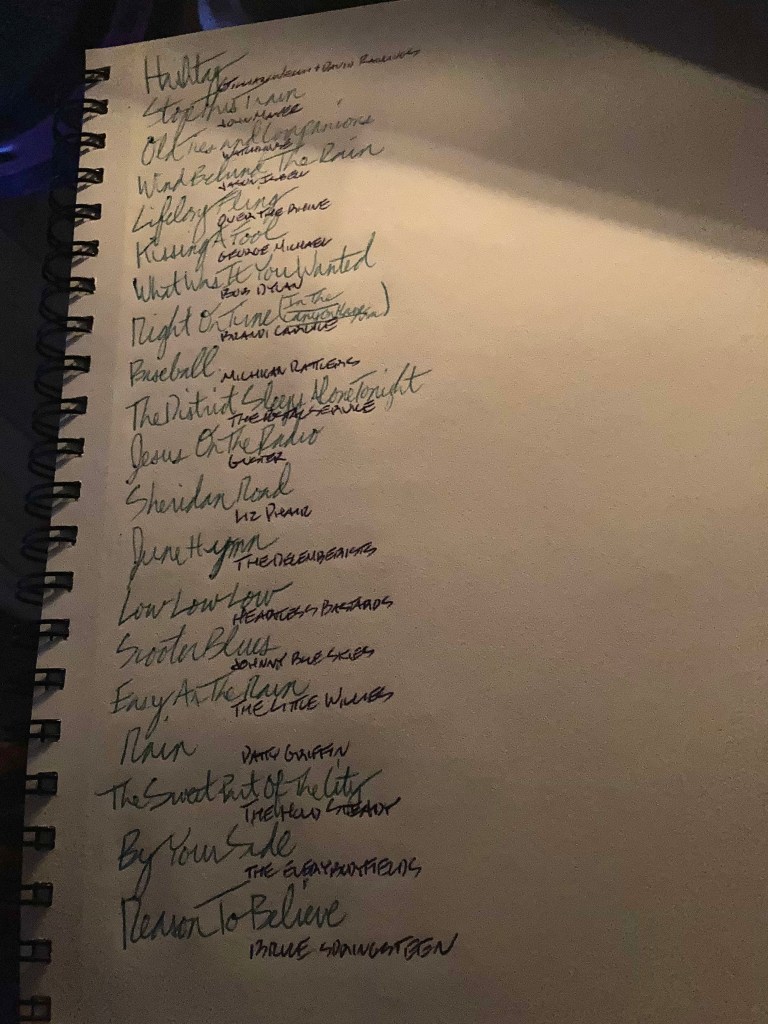 Hashtag
Gillian Welch + David Rawlings
Stop This Train
John Mayer
Old Ties and Companions
Watchhouse
Wind Behind The Rain
Jason Isbell
Lifelong Fling
Over The Rhine
Kissing A Fool
George Michael
What Was It You Wanted
Bob Dylan
Right On Time (In The Canyon Haze)
Brandi Carlile
Baseball
Michigan Rattlers
The District Sleeps Alone Tonight
The Postal Service
Jesus On The Radio
Guster
Sheridan Road
Liz Phair
June Hymn
The Decemberists
Low Low Low
Heartless Bastards
Scooter Blues
Johnny Blue Skies
Easy As The Rain
The Little Willies
Rain
Patty Griffin
The Sweet Part Of The City
The Hold Steady
By Your Side
The Everybodyfields
Reason To Believe
Bruce Springsteen